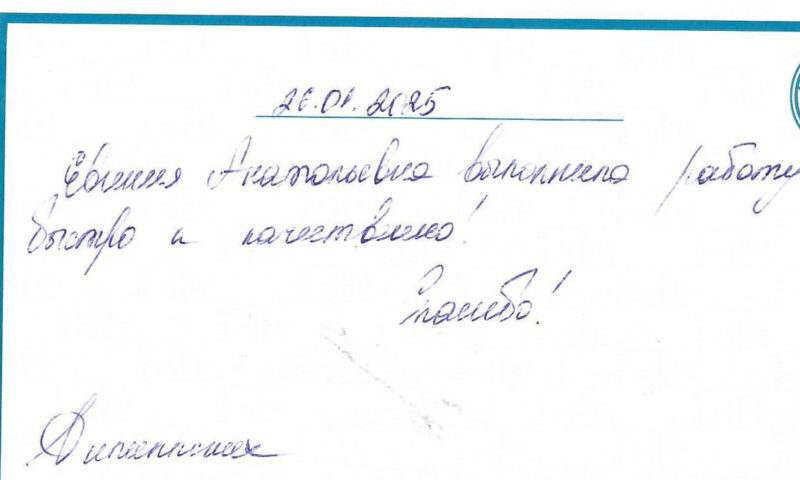 26.01.2025
Евгения Анатольевна выполнила работу
быстро и качественно!
Спасибо!